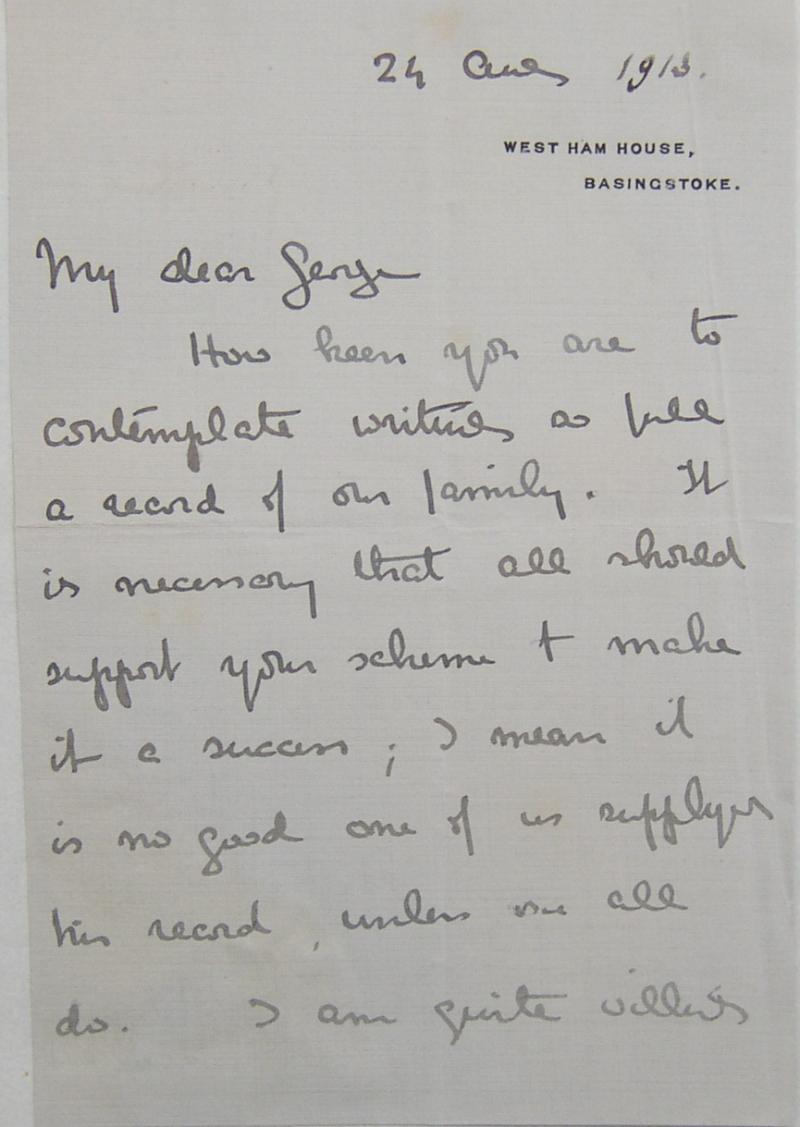 24 Aug 1913.
WEST HAM HOUSE,
BASINGSTOKE.
My dear George
How keen you are to
contemplate writing so full
a record of our family. It
is necessary that all should
support your scheme + make
it a success; I mean it
is no good one of us supplying
his record, unless we all
do. I am quite willing